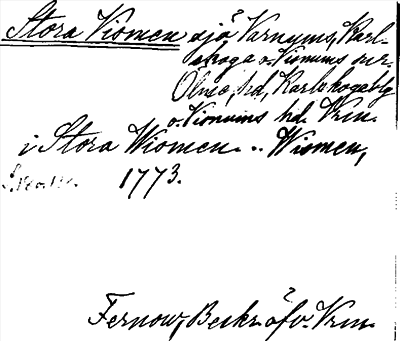 Stora Viomen sjö Varnums, Karl-
skoga o. Visnums snr
Ölme, hd, Karlskogabg
o. Visnums hd. Vrm.
i Stora Wiomen .. Wiomen,
1773.
Fernow, Beskr. öfv. Vrm.